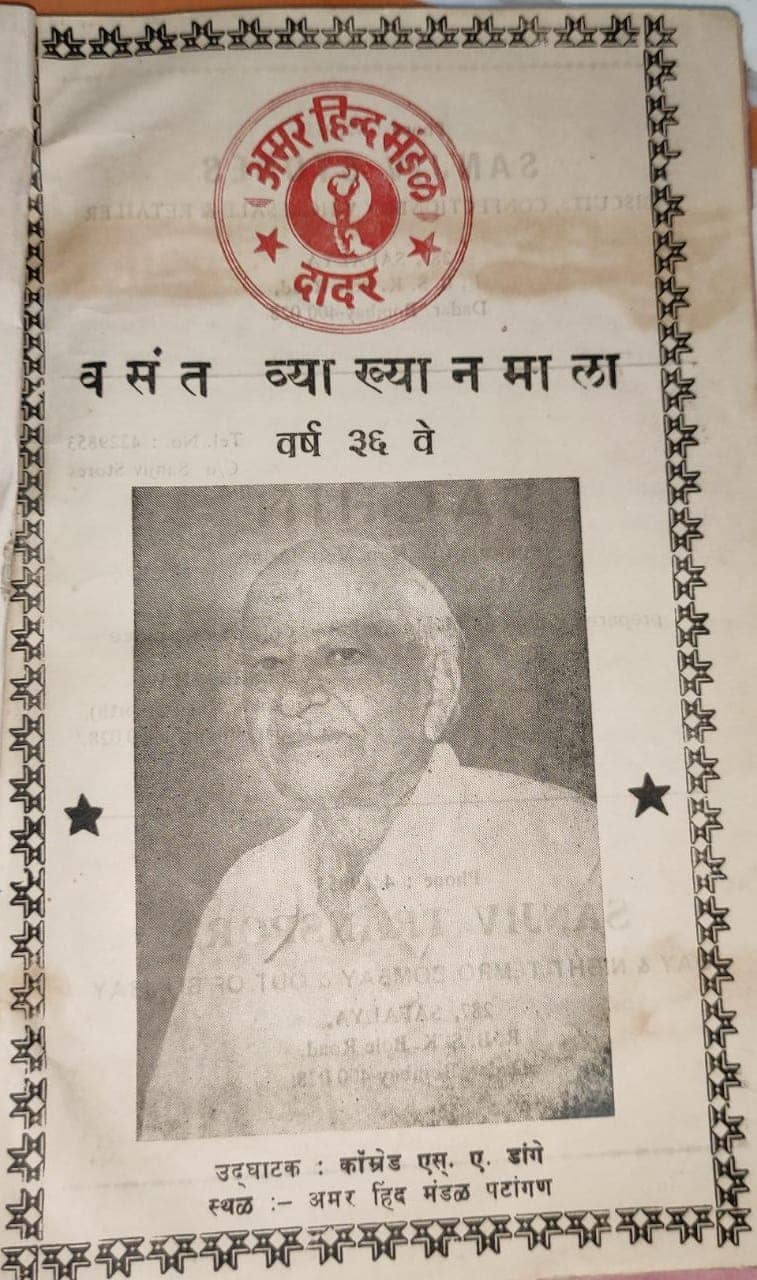 अमर हिन्द मंडळ
दादर
वसंत व्याख्यानमाला
वर्ष ३६ वे
उद्‌घाटक : कॉम्रेड एस्. ए. डांगे
स्थळ :– अमर हिंद मंडळ पटांगण